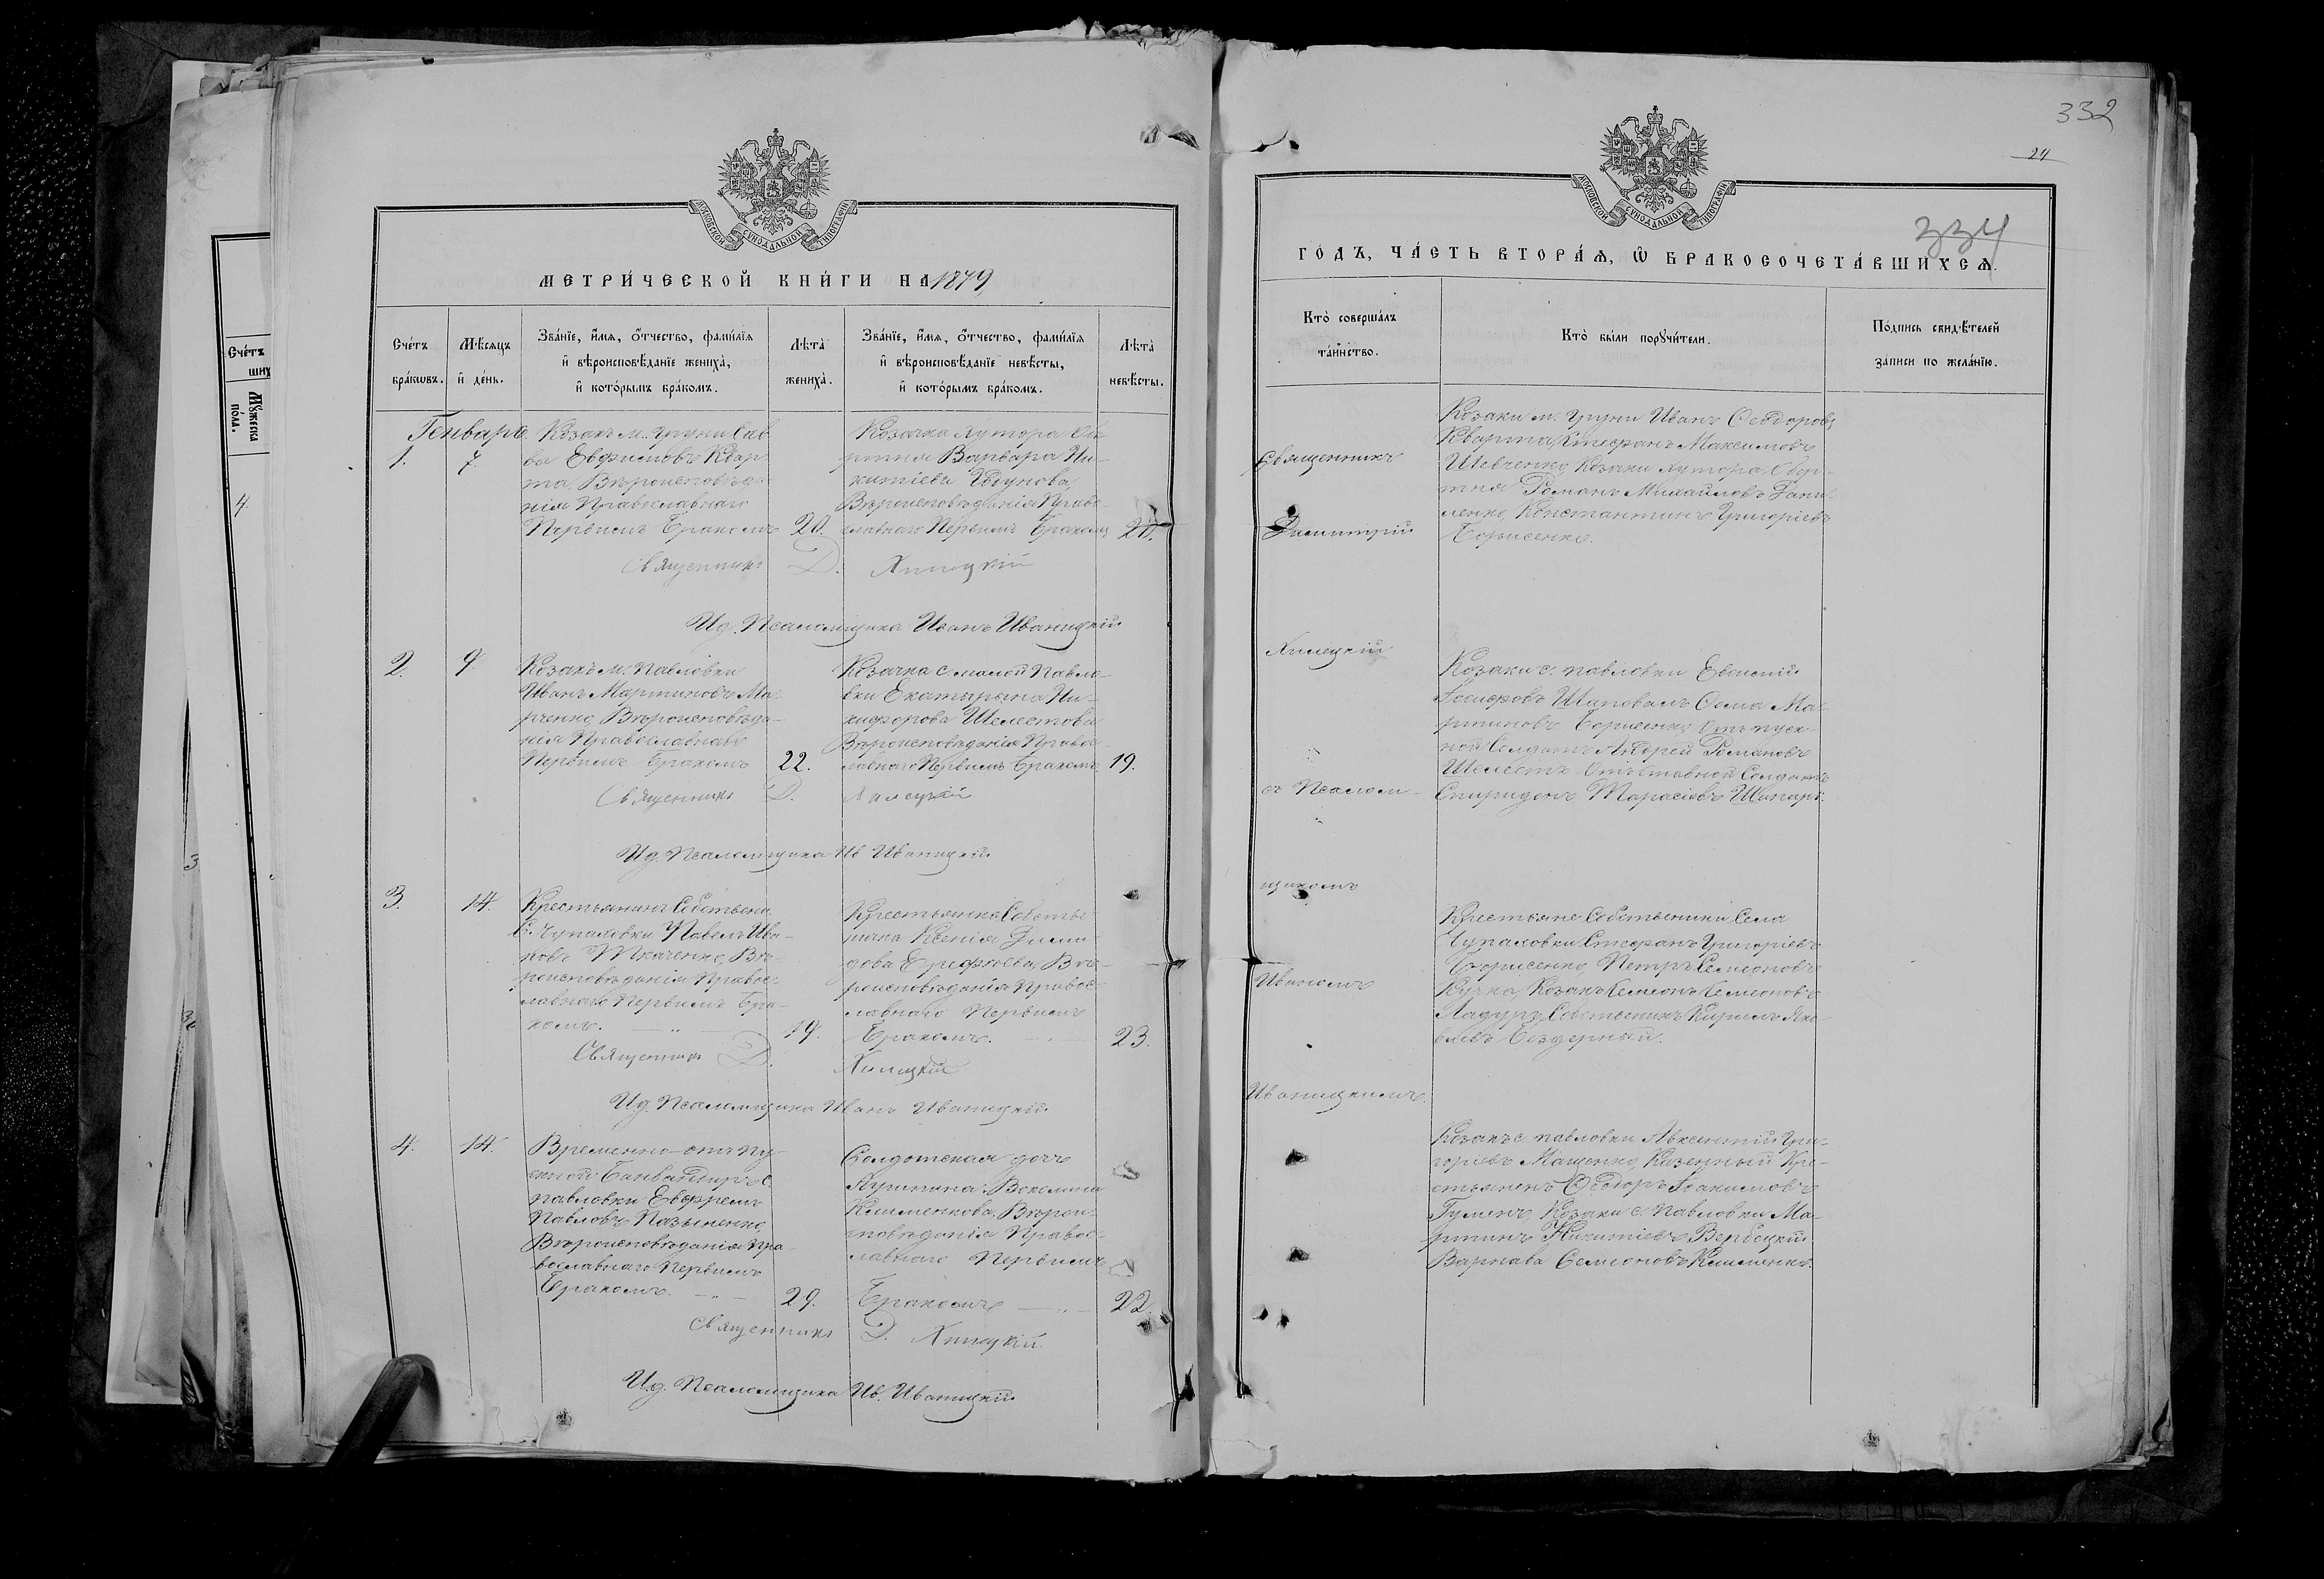 332
24
334
МОСКОВСКОЙ СУНОДАЛЬНОЙ ТИПОГРАФІИ
МЕТРИ́ЧЕСКОЙ КНИ́ГИ НА 1879
Сче́тъ бра́кωвъ.
Мѣ́сяцъ и҆ де́нь.
Зва́нїе, и҆́мѧ, ѻ҆́тчество, фами́лїѧ
и҆ вѣроисповѣ́данїе жениха̀,
и҆ кото́рымъ бра́комъ.
Лѣ́та̀ жениха̀.
Зва́нїе, и҆́мѧ, ѻ҆́тчество, фами́лїѧ
и҆ вѣроисповѣ́данїе невѣ́сты,
и҆ кото́рымъ бра́комъ.
Лѣ́та̀ невѣ́сты.
Генваря
1.
7.
Козакъ м. Груни Сав
ва Евфимовъ Квар
та, Вѣроисповѣда
нія Православнаго
Первымъ Бракомъ
20.
Козачка Хутора
Варвара Ни-
китіева
Вѣроисповѣданія Право
славнаго Первымъ Бракомъ
20.
Священникъ Д. Хилецкій
И.д. Псаломщика Иванъ Иваницкій
2.
9.
Козакъ м. Павловки
Иванъ Мартиновъ Ма
рченко, Вѣроисповѣда-
нія Православнаго
Первымъ Бракомъ
22.
Козачка с малой Павло-
вки Екатырына Ни-
кифорова Шелестова
Вѣроисповѣданія Правос
лавнаго Первымъ Бракомъ
19.
Священникъ Д. Хилецкій
И.д. Псаломщика Ив Иваницкій
3.
14.
Крестьянинъ Собственн
С. Чупаховки Павелъ Ива-
новъ Ткаченко, Вѣ-
роисповѣданія Правос-
лавнаго Первымъ Бра-
комъ.
19.
Крестьянка Собстве
ника Ксенія
Вѣ-
роисповѣданія Правос
лавнаго Первымъ
Бракомъ.
23.
Священникъ Д. Хилецкій
И.д. Псаломщика Иванъ Иваницкій
4.
14.
Временно отпу
скной с.
павловки Евфремъ
Павловъ
Вѣроисповѣданія Пра-
вославнаго Первымъ
Бракомъ.
29.
Солдатская дочь
Клименкова, Вѣрои-
сповѣданія Правос-
лавнаго Первымъ
Бракомъ
22.
Священникъ Д. Хилецкій
И.д. Псаломщика Ив. Иваницкій
МОСКОВСКОЙ СУНОДАЛЬНОЙ ТИПОГРАФІИ
ГО́ДЪ, ЧА́СТЬ ВТОРА́Ѧ, Ѡ҆ БРАКОСОЧЕТА́ВШИХСѦ.
Кто̀ соверша́лъ
та́инство.
Кто̀ бы́ли порꙋчи́тели.
По́дпись свидѣ́телей
за́писи по жела́нїю.
Священникъ
Димитрій
Хилецкій
съ Псалом-
щикомъ
Иваномъ
Иваницкимъ.
Козаки м. Груни Иванъ Ѳеодоровъ
Кварта, Стефанъ Максимовъ
Шевченко, Козаки хутора
Романъ Михайловъ Дани
ленко, Константинъ Григоріевъ
Борисенко.
Козаки с. павловки Евѳимій
Іосифовъ Шаповалъ Ѳома Ма-
ртиновъ Борисенко, Отъпуск-
ной Солдатъ Андрей Романовъ
Шелестъ Отъставной Солдатъ
Спиридонъ Тарасіовъ
Крестьяне Собственики Села
Чупаховки Стефанъ Григоріевъ
Борисенко, Петръ Семеоновъ
Кучка, Козакъ Семеонъ Семеоновъ
Собственикъ Кирилъ Яко-
влевъ
Козакъ с. павловки Авксентій Гри-
горіевъ Мащенко, Казенный Кре-
стьянинъ Ѳеодоръ Іоакимовъ
Козаки с. Павловки Ма-
ртинъ Никитіевъ Вербецкій
Варнава Семеоновъ Клименко.